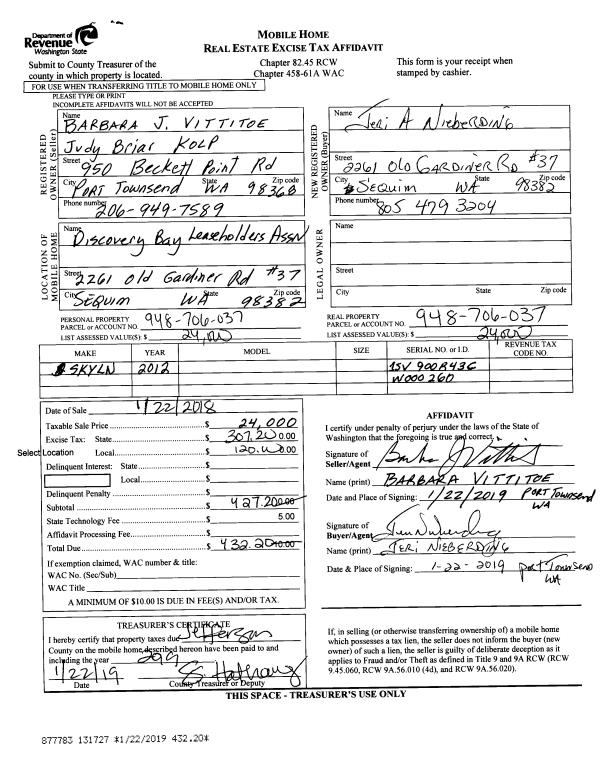 Department of
Revenue
Washington State
MOBILE HOME
REAL ESTATE EXCISE TAX AFFIDAVIT
Submit to County Treasurer of the
county in which property is located.
Chapter 82.45 RCW
Chapter 458-61A WAC
This form is your receipt when
stamped by cashier.
FOR USE WHEN TRANSFERRING TITLE TO MOBILE HOME ONLY
PLEASE TYPE OR PRINT
INCOMPLETE AFFIDAVITS WILL NOT BE ACCEPTED
REGISTERED OWNER (Seller)
Name
BARBARA J. VITTITOE
Judy Briar KOLP
Street 950 Beckett Point Rd
City PORT Townsend State WA Zip code 98368
Phone number 206-949-7589
NEW REGISTERED OWNER (Buyer)
Name
Jeri A Nieberding
Street 2261 Old GARDINER RD #37
City SEQUIM State WA Zip code 98382
Phone number 805 479 3204
LOCATION OF MOBILE HOME
Name
Discovery Bay Leaseholders Assn
Street 2261 Old Gardiner Rd #37
City SEQUIM State WA Zip code 98382
LEGAL OWNER
Name
Street
City State Zip code
PERSONAL PROPERTY
PARCEL or ACCOUNT NO. 948-706-037
LIST ASSESSED VALUE(S): $ 24,000
REAL PROPERTY
PARCEL or ACCOUNT NO. 948-706-037
LIST ASSESSED VALUE(S): $ 24,000
MAKE YEAR MODEL SIZE SERIAL NO. or I.D. REVENUE TAX CODE NO.
SKYLN 2012 1SV 900R43C
W000260
Date of Sale 1/22/2018
Taxable Sale Price $ 24,000
Excise Tax: State $ 307.20 0.00
Select Location Local $ 120.00 0.00
Delinquent Interest: State $
Local $
Delinquent Penalty $
Subtotal $ 427.20 0.00
State Technology Fee $ 5.00
Affidavit Processing Fee $
Total Due $ 432.20 10.00
If exemption claimed, WAC number & title:
WAC No. (Sec/Sub)
WAC Title
A MINIMUM OF $10.00 IS DUE IN FEE(S) AND/OR TAX.
AFFIDAVIT
I certify under penalty of perjury under the laws of the State of
Washington that the foregoing is true and correct.
Signature of
Seller/Agent
Name (print) BARBARA VITTITOE
Date and Place of Signing: 1/22/2019 PORT Townsend
WA
Signature of
Buyer/Agent
Name (print) JERI NIEBERDING
Date & Place of Signing: 1-22-2019 port Townsend
WA
TREASURER'S CERTIFICATE
I hereby certify that property taxes due Jefferson
County on the mobile home described hereon have been paid to and
including the year 2019
1/22/19
Date County Treasurer or Deputy
If, in selling (or otherwise transferring ownership of) a mobile home
which possesses a tax lien, the seller does not inform the buyer (new
owner) of such a lien, the seller is guilty of deliberate deception as it
applies to Fraud and/or Theft as defined in Title 9 and 9A RCW (RCW
9.45.060, RCW 9A.56.010 (4d), and RCW 9A.56.020).
THIS SPACE - TREASURER'S USE ONLY
877783 131727 *1/22/2019 432.20*